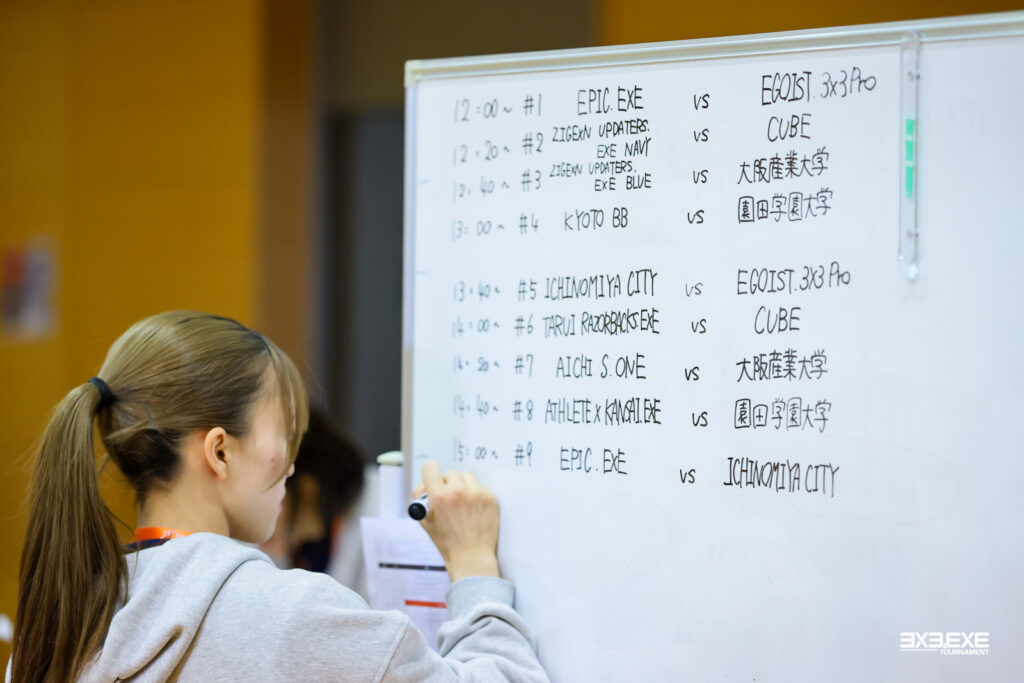 12:00~ #1 EPIC.EXE vs EGOIST.3x3Pro
12:20~ #2 ZIGExN UPDATERS.
EXE NAVY vs CUBE
12:40~ #3 ZIGExN UPDATERS.
EXE BLUE vs 大阪産業大学
13:00~ #4 KYOTO BB vs 園田学園大学
13:40~ #5 ICHINOMIYA CITY vs EGOIST.3X3Pro
14:00~ #6 TARUI RAZORBACKS.EXE vs CUBE
14:20~ #7 AICHI S.ONE vs 大阪産業大学
14:40~ #8 ATHLETE x KANSAI.EXE vs 園田学園大学
15:00~ #9 EPIC.EXE vs ICHINOMIYA CITY
3X3.EXE
TOURNAMENT